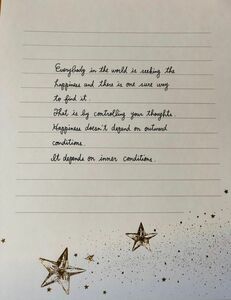 Everybody in the world is seeking the
happiness and there is one sure way
to find it.
That is by controlling your thoughts.
Happiness doesn't depend on outward
conditions.
It depends on inner conditions.